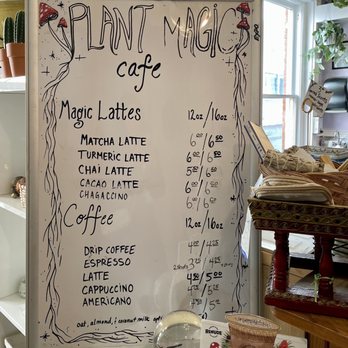 PLANT MAGIC
cafe
Magic Lattes 12oz/16oz
MATCHA LATTE 6⁰⁰/6⁵⁰
TURMERIC LATTE 6⁰⁰/6⁵⁰
CHAI LATTE 5⁵⁰/6⁰⁰
CACAO LATTE 6⁰⁰/6⁵⁰
CHAGACCINO 6⁰⁰/6⁵⁰
Coffee 12oz/16oz
DRIP COFFEE
ESPRESSO
LATTE 4⁵⁰/5⁰⁰
CAPPUCCINO
AMERICANO
oat, almond, & coconut milk